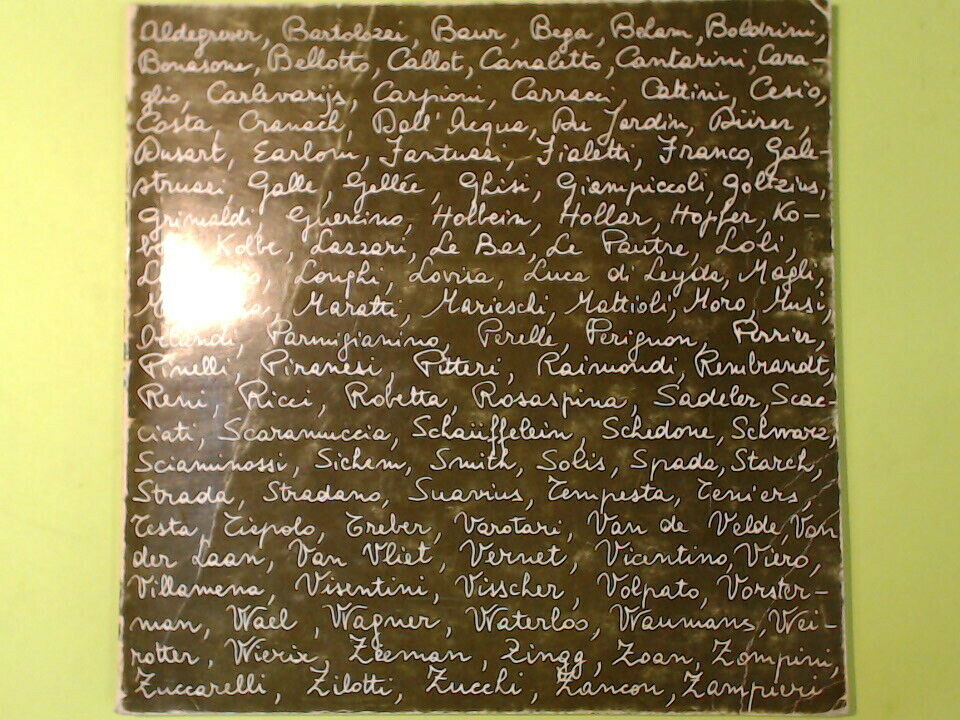 Aldegrever, Bartolozzi, Baur, Bega, Bolam, Boldrini,
Bonasone, Bellotto, Callot, Canaletto, Cantarini, Cara-
glio, Carlevarijs, Carpioni, Carracci, Cattini, Cesio,
Costa, Cranach, Dall'Acqua, Du Jardin, Dürer,
Dusart, Earlom, Fantuzzi, Fialetti, Franco, Gale-
struzzi, Galle, Gellée, Ghisi, Giampiccoli, Goltzius,
Grimaldi, Guercino, Holbein, Hollar, Hopfer, Ko-
Kolbe, Lazzari, Le Bas, Le Pautre, Loli,
Longhi, Lovisa, Luca di Leyda, Magli,
Maratti, Marieschi, Mattioli, Moro, Musi,
Orlandi, Parmigianino, Perelle, Perignon, Perrier,
Pinelli, Piranesi, Pitteri, Raimondi, Rembrandt,
Reni, Ricci, Robetta, Rosaspina, Sadeler, Scac-
ciati, Scaramuccia, Schaüffelein, Schidone, Schwarz,
Sciaminossi, Sichem, Smith, Solis, Spada, Starch,
Strada, Stradano, Suavius, Tempesta, Teniers,
Testa, Tiepolo, Treber, Varotari, Van de Velde, Van
der Laan, Van Vliet, Vernet, Vicentino, Viero,
Villamena, Visentini, Visscher, Volpato, Vorster-
man, Wael, Wagner, Waterloo, Waumans, Wei-
rotter, Wierix, Zeeman, Zingg, Zoan, Zompini,
Zuccarelli, Zilotti, Zucchi, Zancon, Zampieri